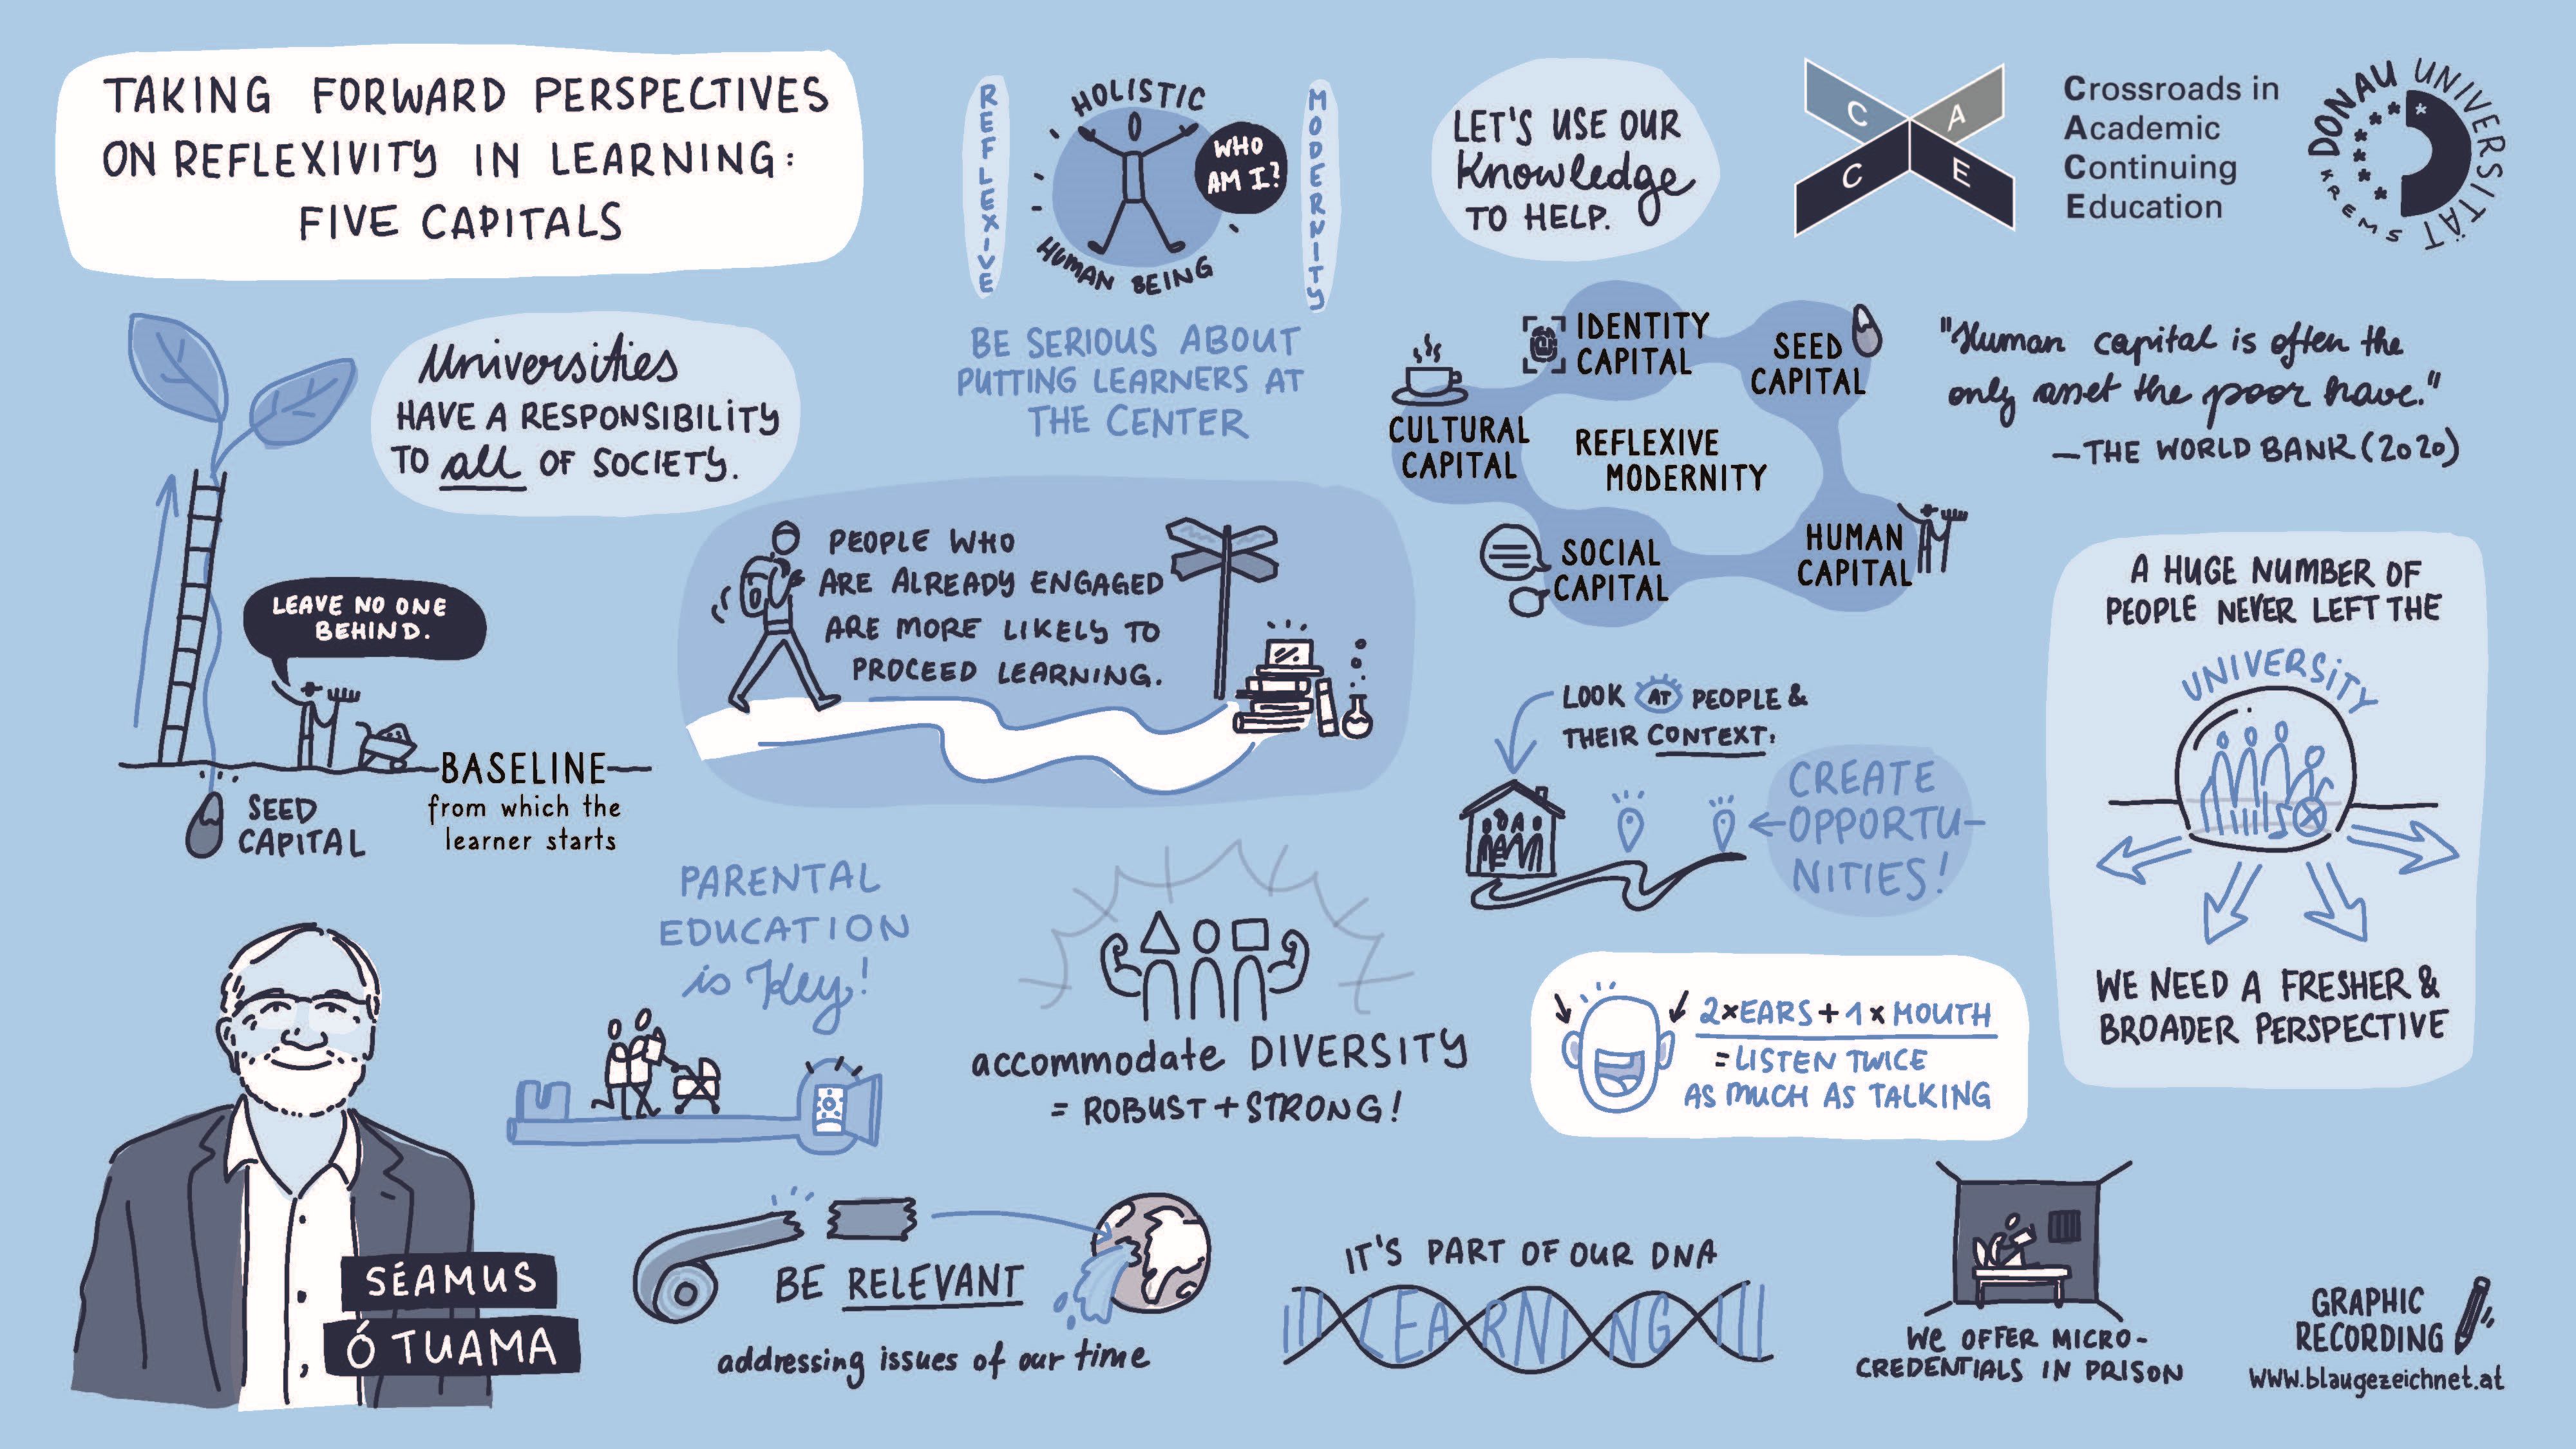 TAKING FORWARD PERSPECTIVES
ON REFLEXIVITY IN LEARNING:
FIVE CAPITALS
REFLEXIVE
HOLISTIC
WHO
AM I?
HUMAN BEING
MODERNITY
BE SERIOUS ABOUT
PUTTING LEARNERS AT
THE CENTER
LET'S USE OUR
Knowledge
TO HELP.
C A
C E
Crossroads in
Academic
Continuing
Education
DONAU UNIVERSITÄT
KREMS
Universities
HAVE A RESPONSIBILITY
TO all OF SOCIETY.
LEAVE NO ONE
BEHIND.
BASELINE
from which the
learner starts
SEED
CAPITAL
PEOPLE WHO
ARE ALREADY ENGAGED
ARE MORE LIKELY TO
PROCEED LEARNING.
IDENTITY
CAPITAL
SEED
CAPITAL
CULTURAL
CAPITAL
REFLEXIVE
MODERNITY
SOCIAL
CAPITAL
HUMAN
CAPITAL
"Human capital is often the
only asset the poor have."
—THE WORLD BANK (2020)
LOOK AT PEOPLE &
THEIR CONTEXT:
CREATE
OPPORTU-
NITIES!
A HUGE NUMBER OF
PEOPLE NEVER LEFT THE
UNIVERSITY
WE NEED A FRESHER &
BROADER PERSPECTIVE
PARENTAL
EDUCATION
is Key!
accommodate DIVERSITY
= ROBUST + STRONG!
2×EARS + 1×MOUTH
= LISTEN TWICE
AS MUCH AS TALKING
SÉAMUS
Ó TUAMA
BE RELEVANT
addressing issues of our time
IT'S PART OF OUR DNA
LEARNING
WE OFFER MICRO-
CREDENTIALS IN PRISON
GRAPHIC
RECORDING
www.blaugezeichnet.at